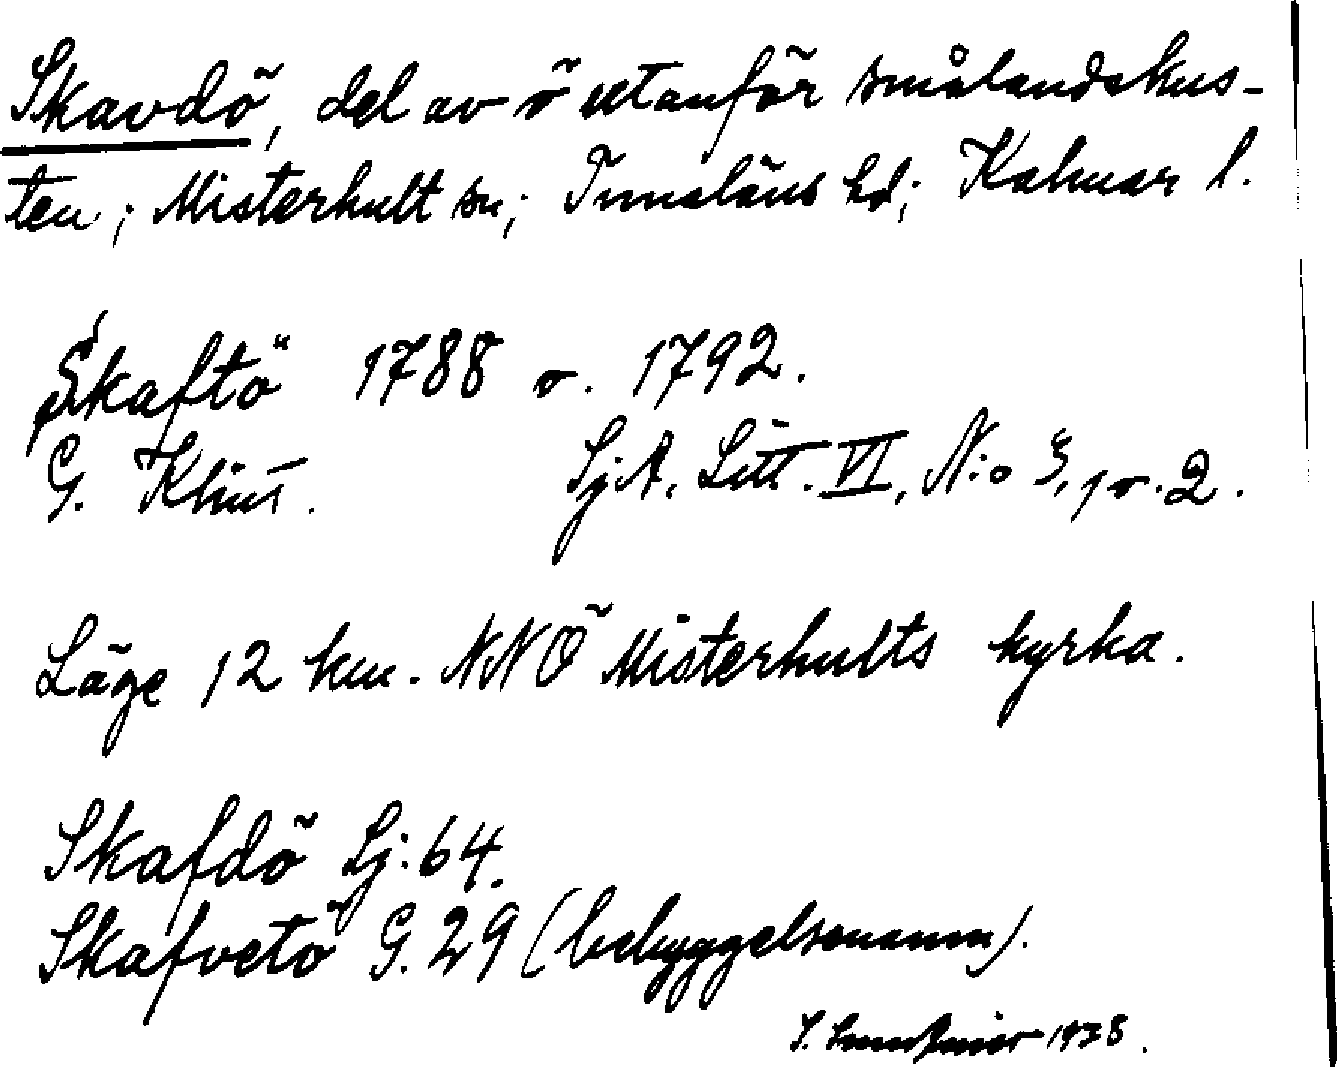 Skavdö, del av ö utanför smålandskus-
ten; Misterhult sn; Tunaläns hd; Kalmar l.
Skaftö 1788 o. 1792.
G. Klint. SjA. Litt. VI, N:o 3, 1 o. 2.
Läge 12 km. NNÖ Misterhults kyrka.
Skafdö Sj:64.
Skafvetö G. 29 (bebyggelsenamn).
1938.